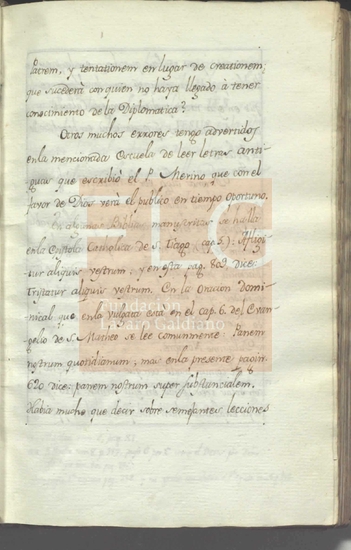 patrem, y tentationem en lugar de creationem;
que sucederà con quien no haya llegado à tener
conocimiento de la Diplomatica?
Otros muchos errores tengo advertidos
en la mencionada Escuela de leer letras anti-
guas que escribiò el P. Merino que con el
favor de Dios verà el publico en tiempo oportuno.
En algunas Biblias manuscritas se halla
en la Epistola Catholica de S. Tiago cap. 5.): Afligi-
tur aliquis vestrum: y en esta pag. 809. dice:
Tristatur aliquis vestrum. En la Oracion Domi-
nical que en la vulgata està en el cap. 6. del Evan-
gelio de S. Matheo se lee comunmente: Panem
nostrum quotidianum, mas en la presente pagin.
620. dice: panem nostrum super substancialem.
Habia mucho que decir sobre semejantes lecciones
FLG
Fundación
Lázaro Galdiano